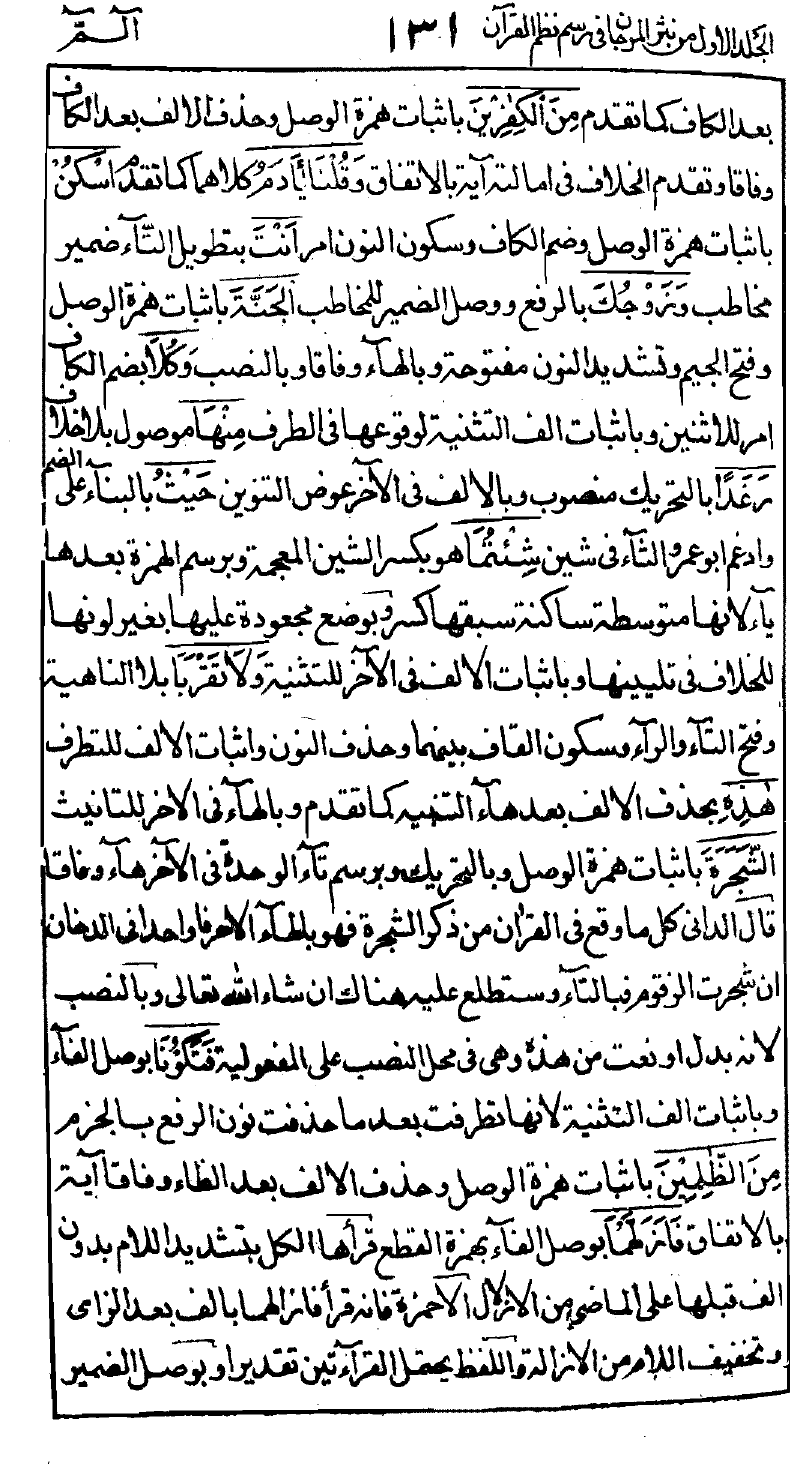 الجلد الاول من نثر المرجان فى رسم نظم القرآن ١٣١ الٓمّٓ
بعد الكاف كما تقدم مِنَ الْكٰفِرِيْنَ باثبات همزة الوصل وحذف الالف بعد الكاف
وفاقا وتقدم الخلاف فى امالته آية بالاتفاق وَقُلْنَا يٰٓاٰدَمُ كلاهما كما تقدم اسْكُنْ
باثبات همزة الوصل وضم الكاف وسكون النون امر اَنْتَ بتطويل التآء ضمير
مخاطب وَزَوْجُكَ بالرفع ووصل الضمير للمخاطب الْجَنَّةَ باثبات همزة الوصل
وفتح الجيم وتشديد النون مفتوحة وبالهآء وفاقا وبالنصب وَكُلَا بضم الكاف
امر للاثنين وباثبات الف التثنية لوقوعها فى الطرف مِنْهَا موصول بلا خلاف
رَغَدًا بالتحريك منصوب وبالالف فى الآخر عوض التنوين حَيْثُ بالبنآء على الضم
وادغم ابو عمرو الثآء فى شين شِئْتُمَا هو بكسر الشين المعجمة وبرسم الهمزة بعدها
يآء لانها متوسطة ساكنة سبقها كسر وبوضع مجعودة عليها بغير لونها
للخلاف فى تليينها وباثبات الالف فى الآخر للتثنية وَلَا تَقْرَبَا بلا الناهية
وفتح التآء والرآء وسكون القاف بينهما وحذف النون واثبات الالف للتطرف
هٰذِهِ بحذف الالف بعد هآء التنبيه كما تقدم وبالهآء فى الآخر للتانيث
الشَّجَرَةَ باثبات همزة الوصل وبالتحريك وبرسم تآء الوحدة فى الآخر هآء وفاقا
قال الدانى كل ما وقع فى القرآن من ذكر الشجرة فهو بالهآء الا حرفا واحدا فى الدخان
ان شجرت الزقوم فبالتآء وستطلع عليه هناك ان شاء الله تعالى وبالنصب
لانه بدل او نعت من هذه وهى فى محل النصب على المفعولية فَتَكُوْنَا بوصل الفآء
وباثبات الف التثنية لانها تطرفت بعد ما حذفت نون الرفع بالجزم
مِنَ الظّٰلِمِيْنَ باثبات همزة الوصل وحذف الالف بعد الظاء وفاقا آية
بالاتفاق فَاَزَلَّهُمَا بوصل الفآء بهمزة القطع قرأها الكل بتشديد اللام بدون
الف قبلها على الماضى من الازلال الا حمزة فانه قرأ فازالهما بالف بعد الزاى
وتخفيف اللام من الازالة واللفظ يحتمل القرآءتين تقديرا وبوصل الضمير